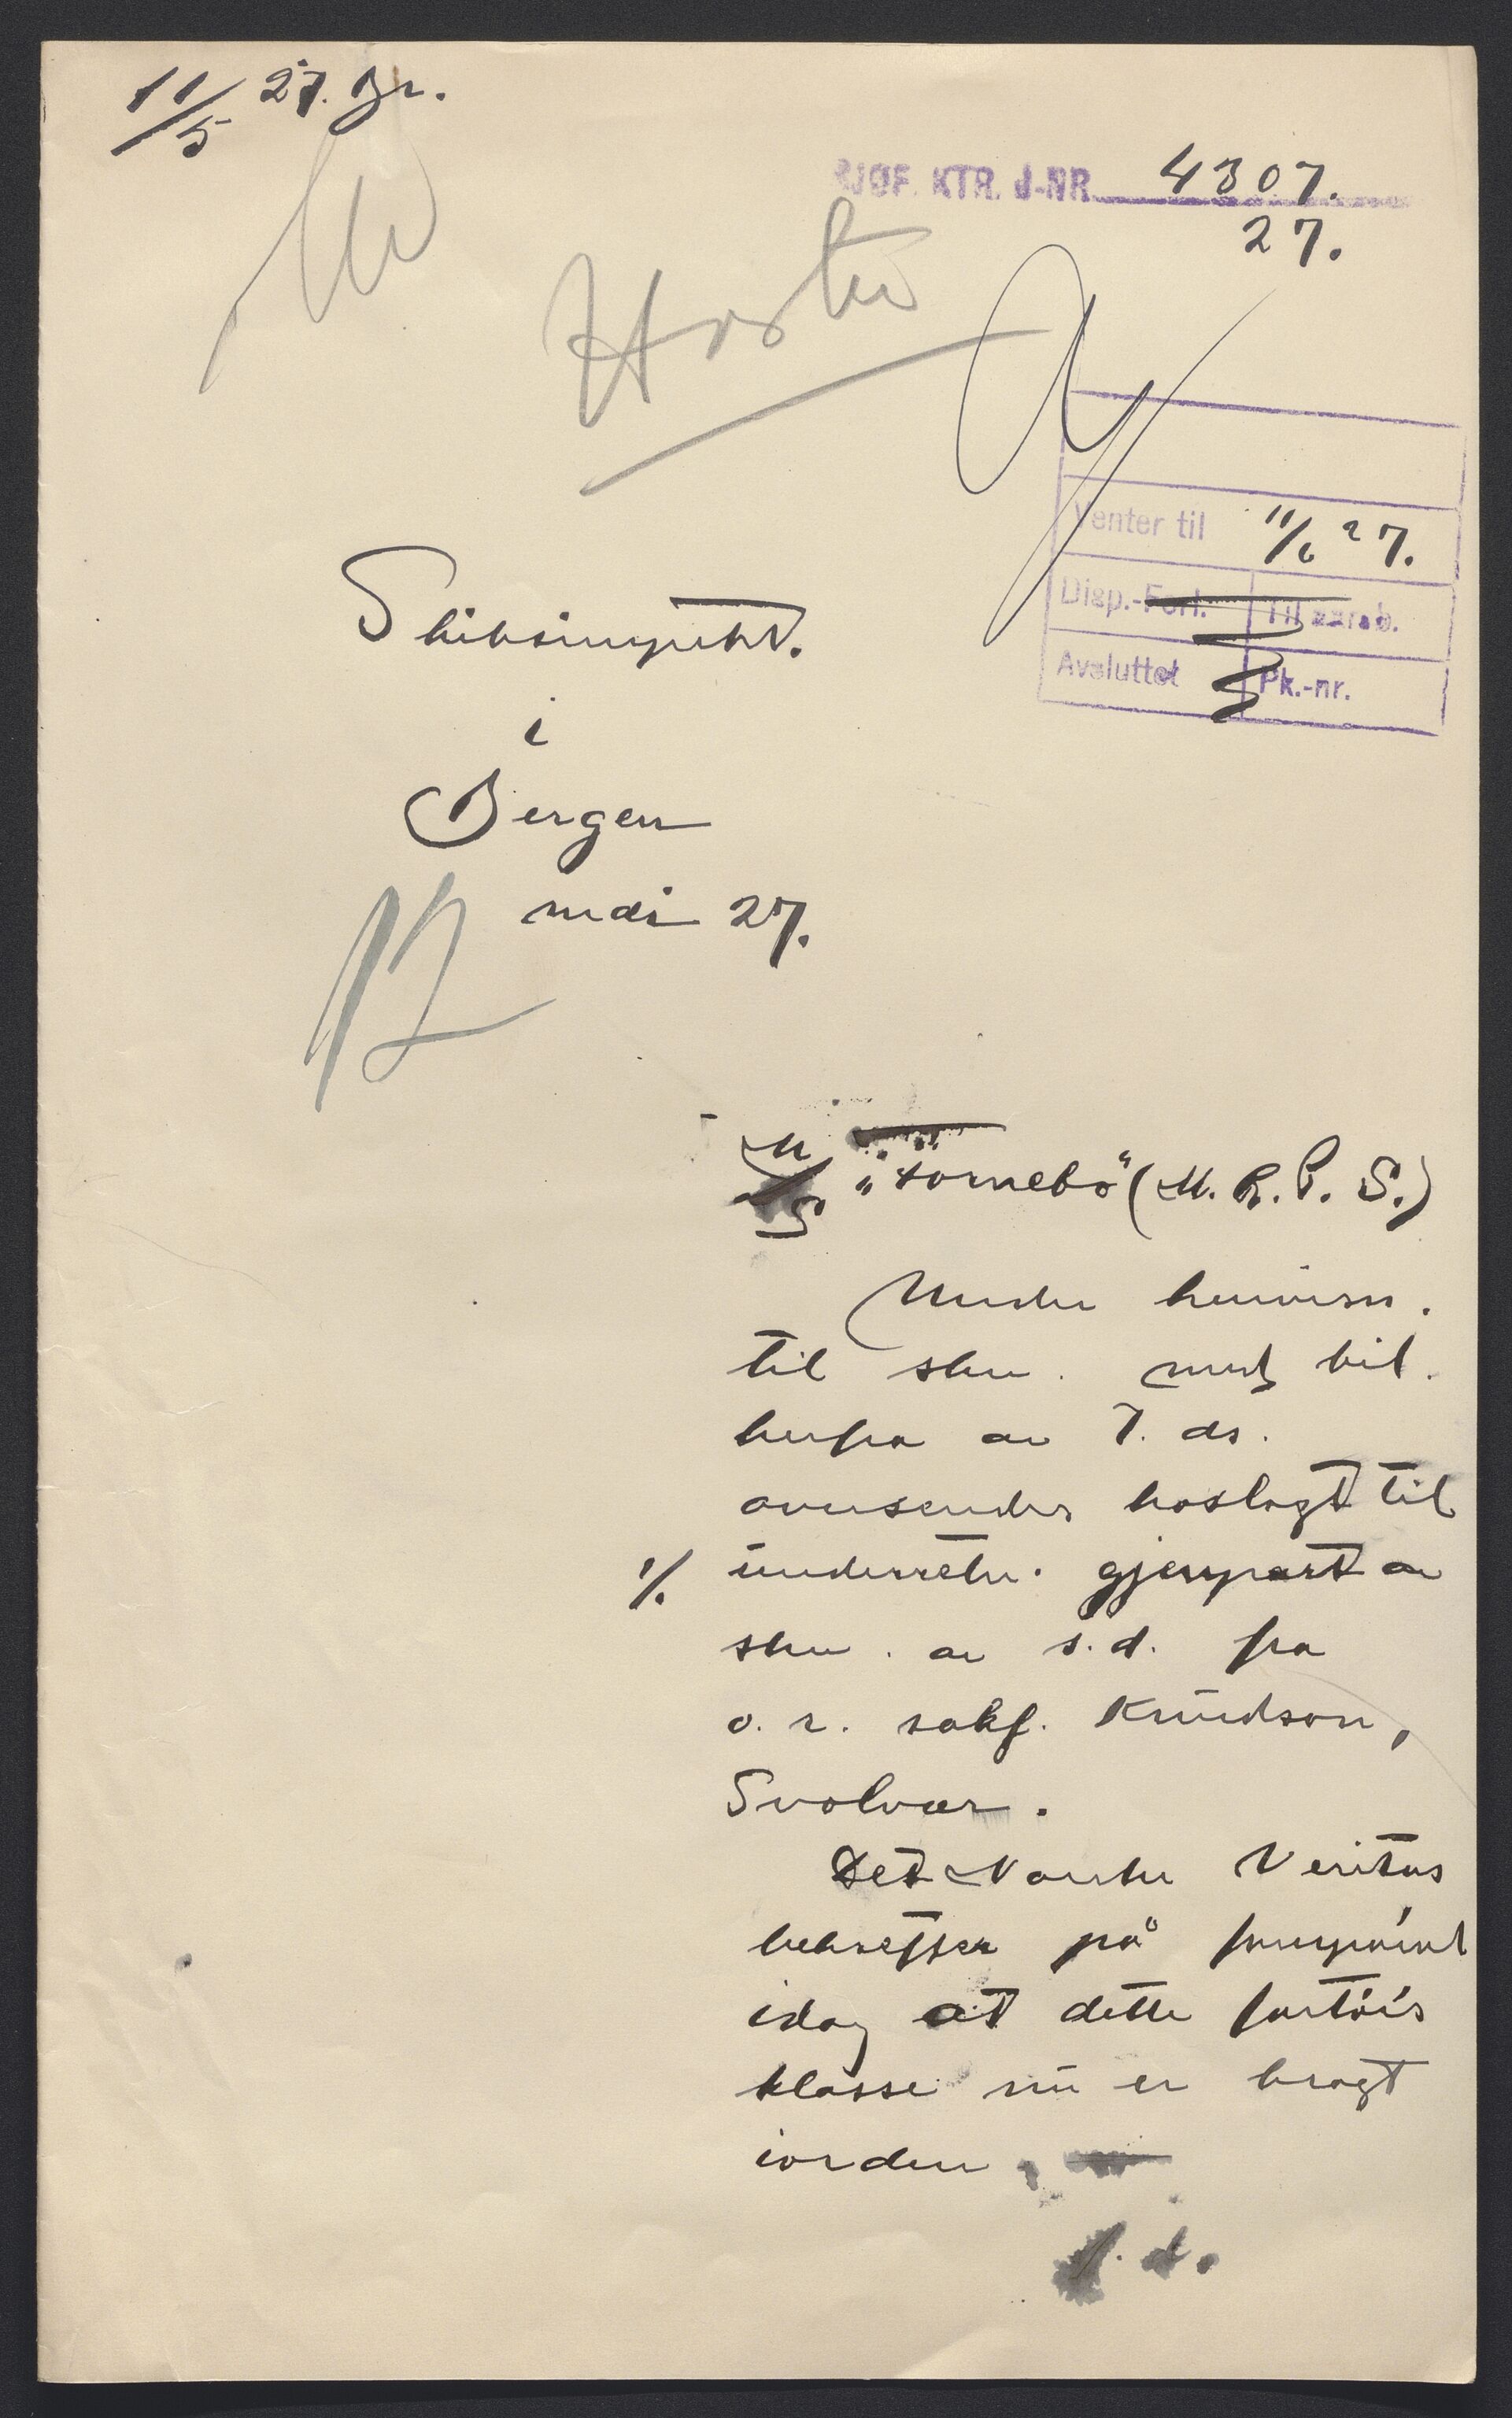 11/5 27. Br.
SJØF. KTR. J-NR. 4307.
27.
Haster
Venter til 11/6 27.
Disp.-Forl. Til
Avsluttet Pk.-nr.
Skibsinspekt.
i
Bergen
12 mai 27.
M/S „Tornebo" (M. R. P. S.)
Under henvisn.
til skr. med bil.
herfra av 7. ds.
oversendes hoslagt til
1/. underretn. gjenpart av
skr. av s.d. fra
o. r. sakf. Knudson,
Svolvær.
Det Norske Veritas
bekrefter på forespørsel
idag at dette fartøis
klasse nu er bragt
iorden.
S. d.